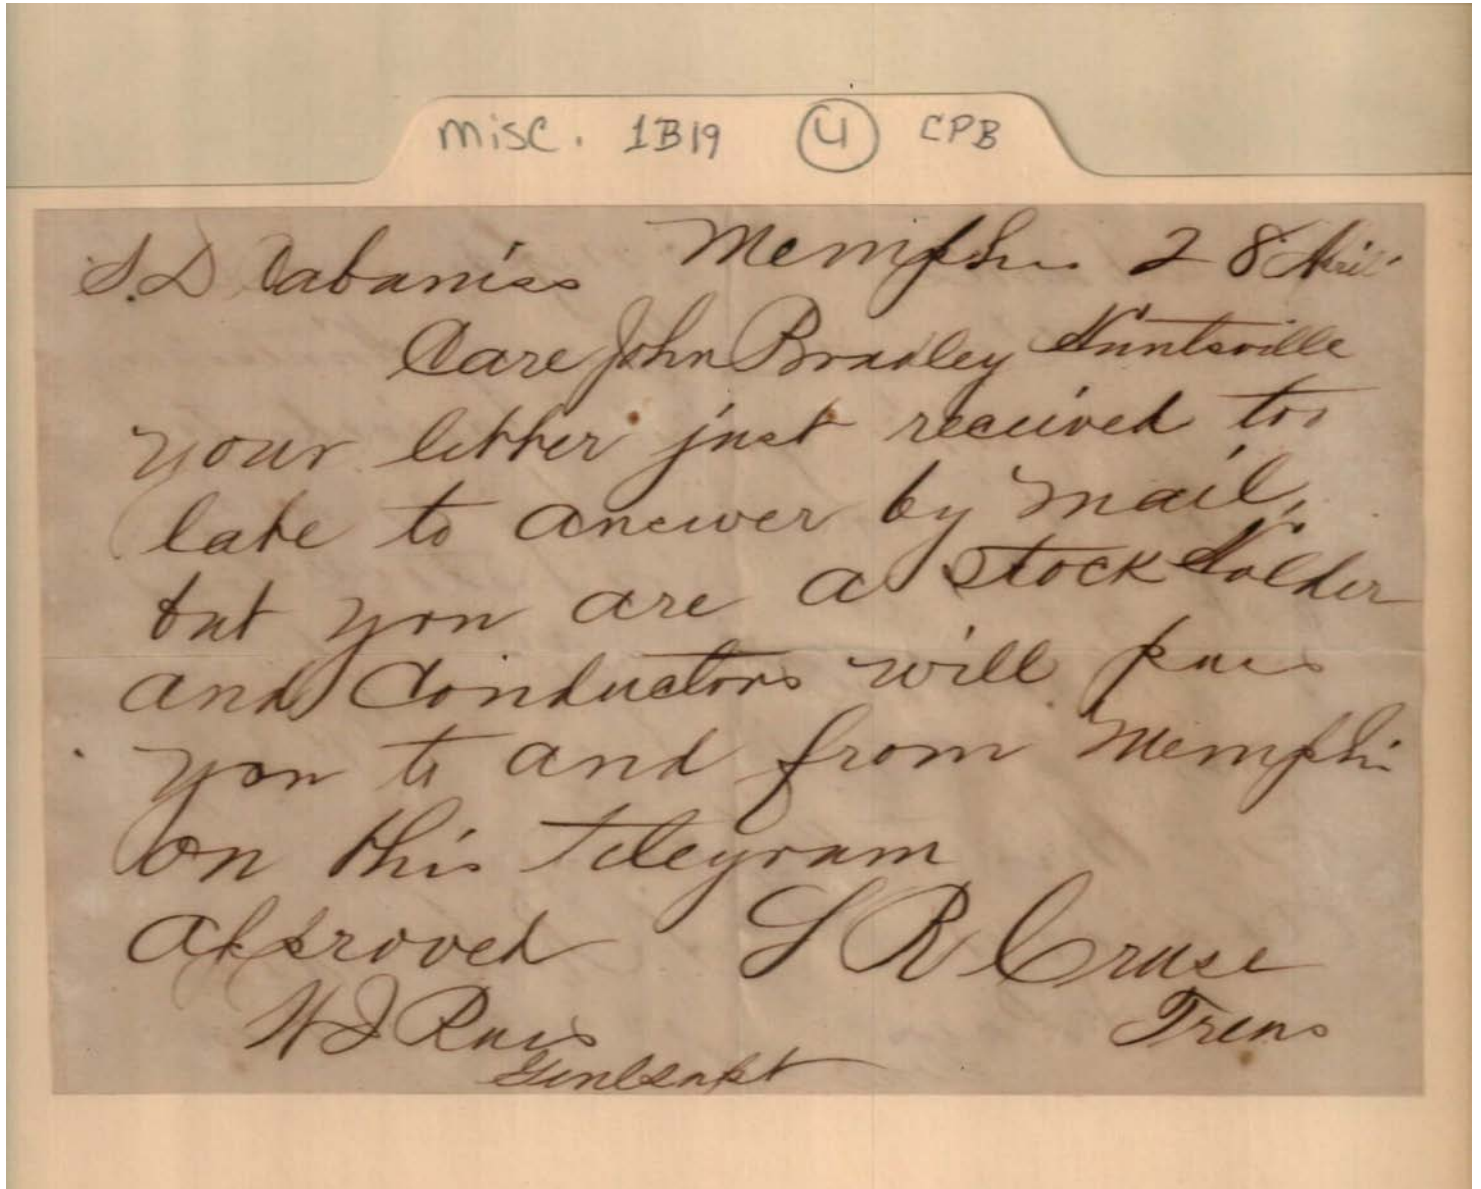 misc. 1B19 4 CPB
S.D Cabaniss Memphis 28 April
Care John Bradley Huntsville
your letter just received too
late to answer by mail,
but you are a stock Holder
and Conductors will pass
you to and from Memphis
on this Telegram
approved S R Cruse
W J Ross Treas
Genl Supt